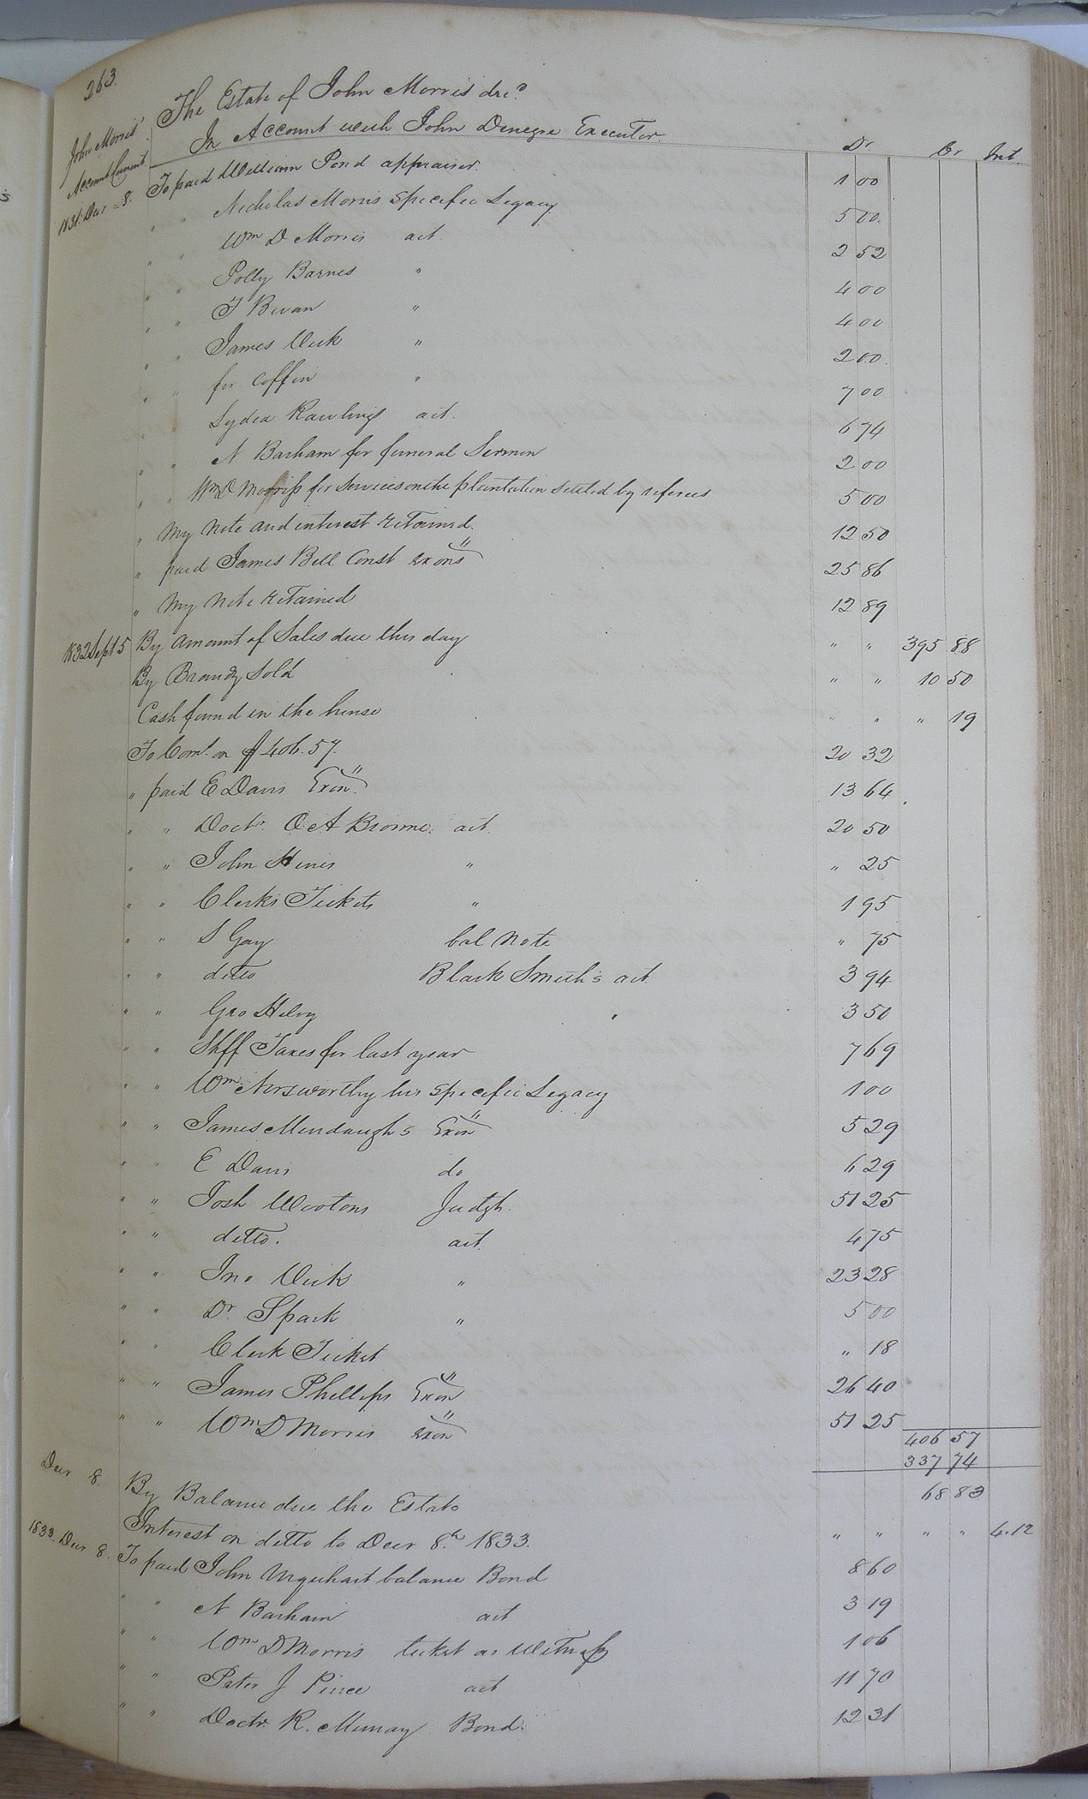 263.
The Estate of John Morris decd
In Account with John Denegre Executor.
Dr. Cr Int
John Morris'
Account Current
1831. Decr 8. To paid William Pond appraiser. 1 00
" " Nicholas Morris specific Legacy 5 00
" " Wm D Morris act. 2 52
" " Polly Barnes " 4 00
" " J Bevan " 4 00
" " James Vick " 2 00
" " for Coffin " 7 00
" " Lydia Rawlings act. 6 74
" " N Barham for funeral Sermon 2 00
" " Wm D Morriss for Services on the plantation settled by referees 5 00
" My Note and interest retained. 12 50
" paid James Bell Const Exons 25 86
" My Note retained 12 89
1832 Sept 5 By Amount of Sales due this day " " 395 88
By Brandy Sold " " 10 50
Cash found in the house " " " 19
To Coms. on $406.57. 20 32
" paid E Davis Exon. 13 64
" " Doctr. O A Browne. act. 20 50
" " John Hines " " 25
" " Clerks Tickets " 1 95
" " S Gay bal Note " 75
" " ditto Black Smith's act 3 94
" " Geo Kelvy " 3 50
" " Shff Taxes for last year 7 69
" " Wm Norsworthy his specific Legacy 1 00
" " James Murdaugh's Exon 5 29
" " E Davis do 6 29
" " Josh Wootons Judgt. 51 25
" " ditto. act. 4 75
" " Jno Vick " 23 28
" " Dr Spark " 5 00
" " Clerk Ticket " 18
" " James Phillips Exon 26 40
" " Wm D Morris Exon 51 25
406 57
337 74
Decr 8. By Balance due the Estate 68 83
Interest on ditto to Decr 8th 1833. " " " " 4.12
1833. Decr 8. To paid John Urquhart balance Bond 8 60
" " N Barham act 3 19
" " Wm D Morris ticket as Witness 1 06
" " Peter J Pince act 11 70
" " Doctr R. Murray Bond. 12 31